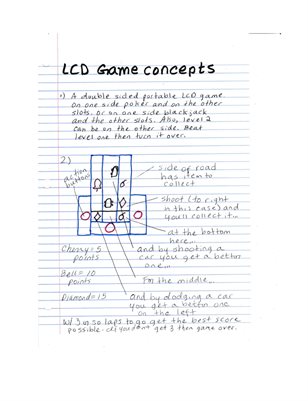 LCD Game concepts
1) A double sided portable LCD game
on one side poker and on the other
slots. or on one side blackjack
and the other slots. Also, level 2
can be on the other side. Beat
level one then turn it over.
2.)
action
buttons
side of road
has item to
collect
shoot (to right
in this case) and
you'll collect it...
at the bottom
here...
Cherry = 5
points
and by shooting a
car you get a bettin
one...
Bell = 10
points
For the middle...
Diamond = 15
and by dodging a car
you get a bettin one
on the left
W/ 3 or so laps to go get the best score
possible. get 3 then game over.